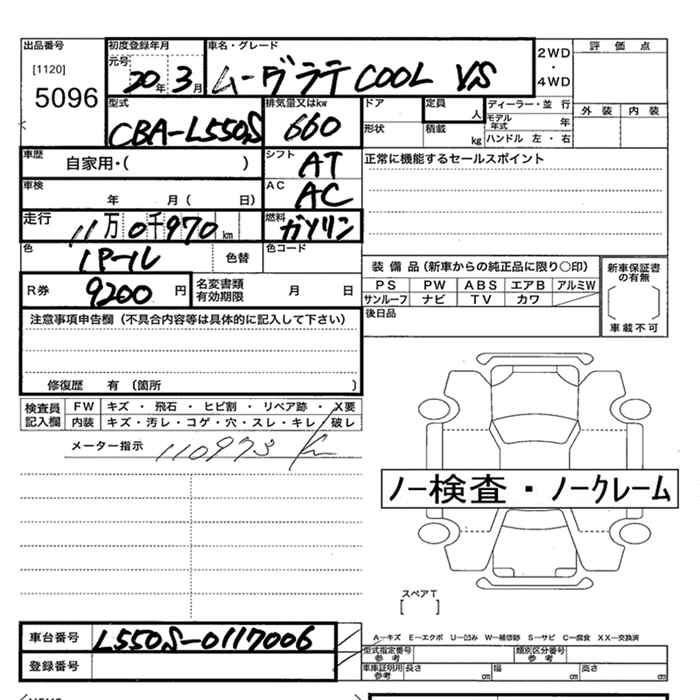 出品番号
[1120]
5096
初度登録年月
元号
20年 3月
車名・グレード
ムーヴラテ COOL VS
2WD
・
4WD
評価点
外装 内装
型式
CBA-L550S
排気量又はkw
660
ドア
形状
定員
人
積載
kg
ディーラー・並行
モデル年式 年
ハンドル 左・右
車歴
自家用・( )
シフト
AT
正常に機能するセールスポイント
車検
年 月( 日)
AC
AC
走行
11万0千970km
燃料
ガソリン
色
パール
色替
色コード
R券
9200円
名変書類
有効期限 月 日
装備品(新車からの純正品に限り○印)
PS PW ABS エアB アルミW
サンルーフ ナビ TV カワ
後日品
新車保証書
の有無
車載不可
注意事項申告欄(不具合内容等は具体的に記入して下さい)
修復歴 有 (箇所 )
検査員
記入欄
FW キズ・飛石・ヒビ割・リペア跡・X要
内装 キズ・汚レ・コゲ・穴・スレ・キレ・破レ
メーター指示 110973 km
ノー検査・ノークレーム
スペアT
[ ]
車台番号
L550S-0117006
登録番号
A−キズ E−エクボ U−凹み W−補修跡 S−サビ C−腐食 XX−交換済
型式指定番号
参考
類別区分番号
参考
車庫証明用
参考
長さ cm 幅 cm 高さ cm